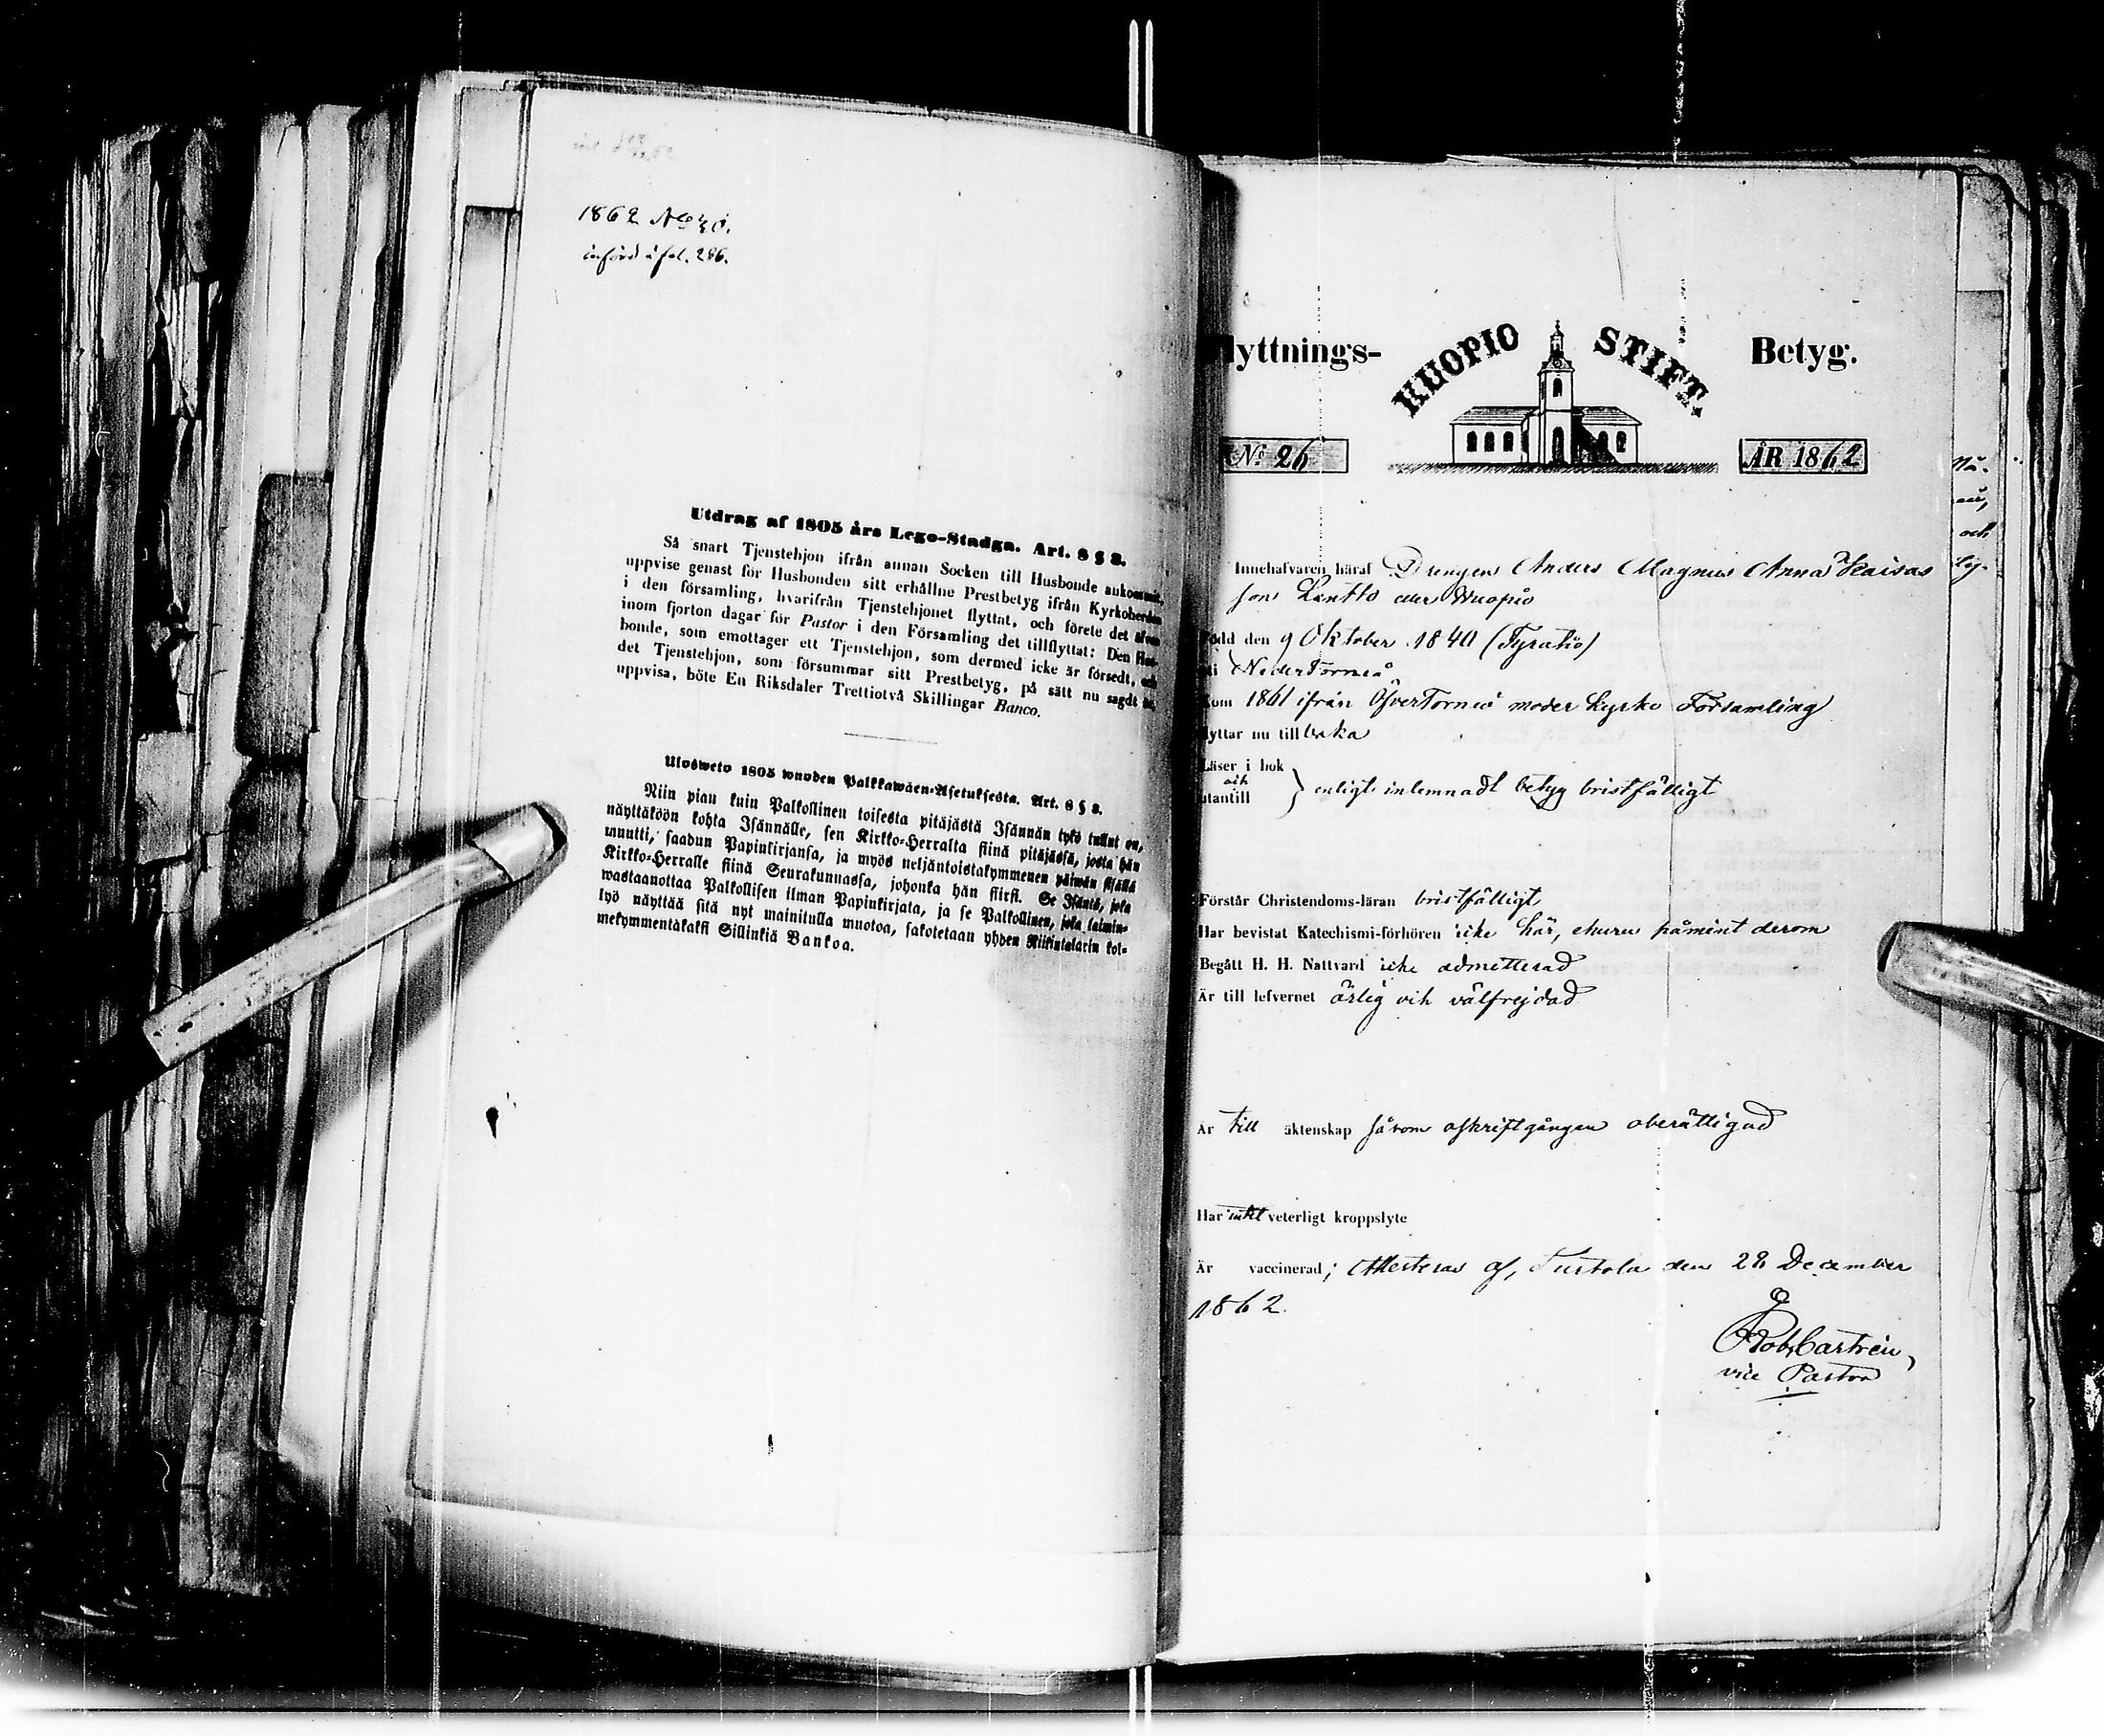 1862 No 30.
införd å fol. 286.
Utdrag af 1805 års Lego-Stadga. Art. 8 § 3.
Så snart Tjenstehjon ifrån annan Socken till Husbonde ankommit,
uppvise genast för Husbonden sitt erhållne Prestbetyg ifrån Kyrkoherden
i den församling, hvarifrån Tjenstehjonet flyttat, och förete det äfven
inom fjorton dagar för Pastor i den Församling det tillflyttat: Den Hus-
bonde, som emottager ett Tjenstehjon, som dermed icke är försedt, och
det Tjenstehjon, som försummar sitt Prestbetyg, på sätt nu sagdt är,
uppvisa, böte En Riksdaler Trettiotvå Skillingar Banco.
Ulosweto 1805 wuoden Palkkawäen-Asetuksesta. Art. 8 § 3.
Niin pian kuin Palkollinen toisesta pitäjästä Isännän tykö tullut on,
näyttäköön kohta Isännälle, sen Kirkko-Herralta siinä pitäjässä, josta hän
muutti, saadun Papinkirjansa, ja myös neljäntoistakymmenen päiwän sisällä
Kirkko-Herralle siinä Seurakunnassa, johonka hän siirsi. Se Isäntä, joka
wastaanottaa Palkollisen ilman Papinkirjata, ja se Palkollinen, joka laimin-
lyö näyttää sitä nyt mainitulla muotoa, sakotetaan yhden Riikintalarin kol-
mekymmentäkaksi Sillinkiä Bankoa.
lyttnings- KUOPIO STIFT. Betyg.
No 26 ÅR 1862
Innehafvaren häraf Drengen Anders Magnus Anna Kaisas
son Kentto eller Wuopio
född den 9 Oktober 1840 (Tyratiö)
i NederTorneå
kom 1861 ifrån ÖfverTorneå moder kyrko Församling
lyttar nu tillbaka
Läser i bok
och
utantill } enligt inlemnadt betyg bristfälligt
Förstår Christendoms-läran bristfälligt
Har bevistat Katechismi-förhören icke här, ehuru påmint derom
Begått H. H. Nattvard icke admitterad
Är till lefvernet ärlig och välfrejdad
Är till äktenskap såsom oskriftgången oberättigad
Har intet veterligt kroppslyte
Är vaccinerad; Attesteras af, Turtola den 28 December
1862.
Rob. Castrén,
vice Pastor
och